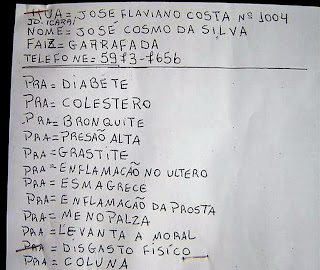 RUA= JOSÉ FLAVIANO COSTA Nº 1004
JD. ICARAÍ
NOME= JOSÉ COSMO DA SILVA
FAIZ= GARRAFADA
TELEFONE= 5973-7656
PRA= DIABETE
PRA= COLESTERO
PRA= BRONQUITE
PRA= PRESÃO ALTA
PRA= GRASTITE
PRA= ENFLAMAÇÃO NO ULTERO
PRA= ESMAGRECE
PRA= ENFLAMAÇÃO DA PROSTA
PRA= MENOPALZA
PRA= LEVANTA A MORAL
PRA= DISGASTO FISÍCO
PRA= COLUNA